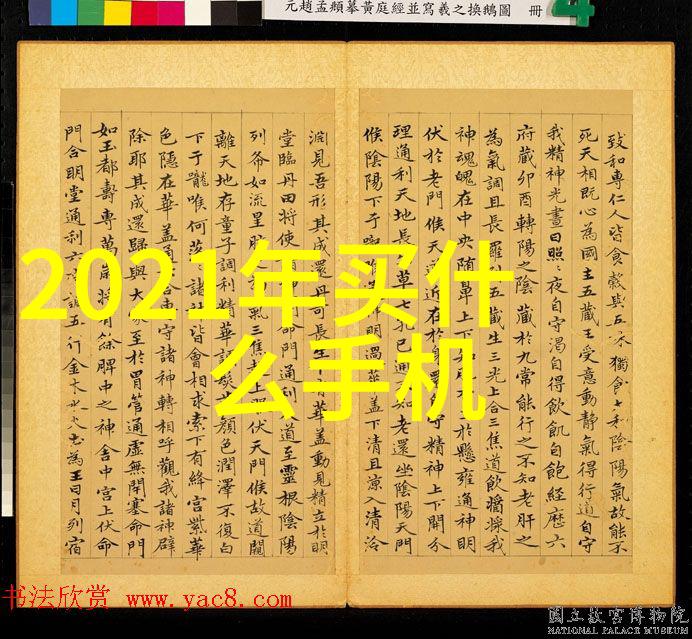 元趙孟頫摹黃庭經並寫羲之換鵝圖 冊
4
致和專仁人皆食穀與五味獨食太和陰陽氣故能不
死天相既心為國主五藏王受意動靜氣得行道自守
我精神光晝日照〻夜自守渴自得飲飢自飽經歷六
府藏卯酉轉陽之陰藏於九常能行之不知老肝之
為氣調且長羅列五藏生三光上合三焦道飲醬漿我
神魂魄在中央随鼻上下知於懸雍通神明
伏於老門候天道近在於身還自守精神上下開分
理通利天地長生草七孔已通不知老還坐陰陽天門
候陰陽下于嚨明過華蓋下清且涼入清泠
淵見吾形其成還丹可長生華蓋動見精立於明
堂臨丹田將使命門通利道至靈根陰陽
列布如流星肺氣三焦上服伏天門候故道闚
離天地存童子調利精華調髮顏色潤澤不復白
下于嚨喉何落〻諸皆會相求索下有絳宮紫華
色隱在華蓋通守諸神轉相呼觀我諸神辟
除耶其成還歸與大家至於胃管通虛無閉塞命門
如玉都壽專萬歲將有餘脾中之神舍中宮上伏命
門合明堂通利六府調五行金木水火土為王日月列宿
2021年买什
么手机
书法欣赏 www.yac8.com
國立故宮博物院
NATIONAL PALACE MUSEUM